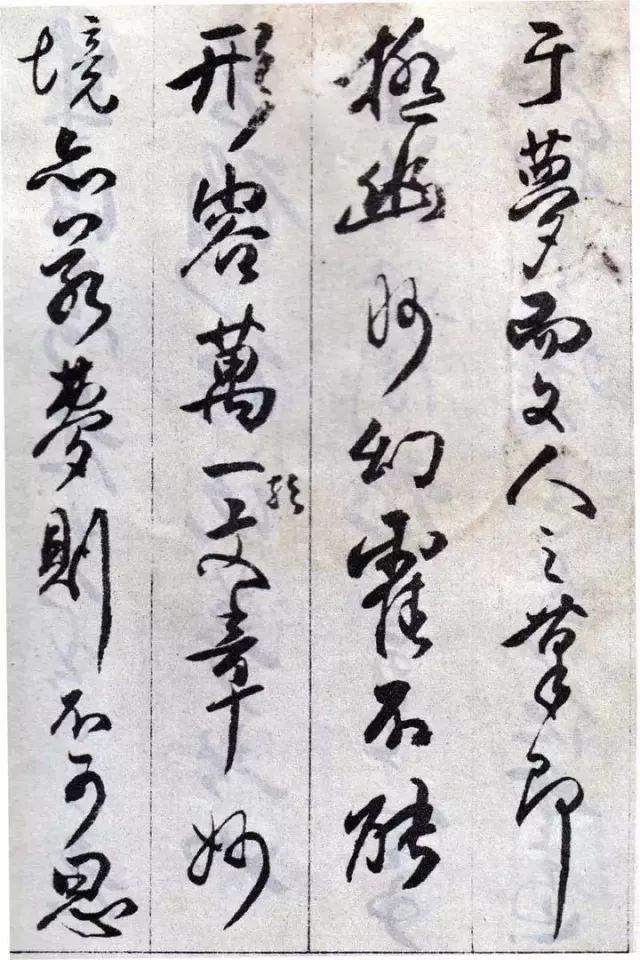 于夢而文人之筆即
極幽幻霍不能
形容萬一至於文章妙
境亦若夢則不可思